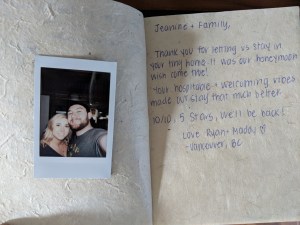 Jeanine + Family,
Thank you for letting us stay in
your tiny home. It was our honeymoon
wish come true!
Your hospitality + welcoming vibes
made our stay that much better.
10/10, 5 Stars, we'll be back!
Love Ryan + Maddy
- Vancouver, BC